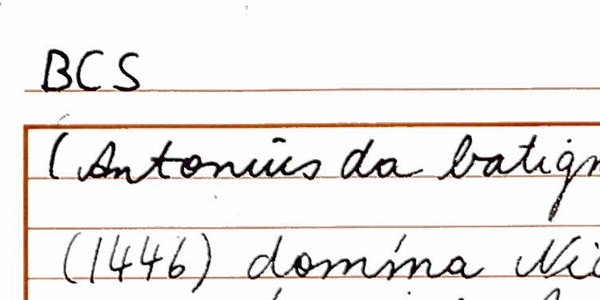 BCS
(Antonius da batign
(1446) domina Nic